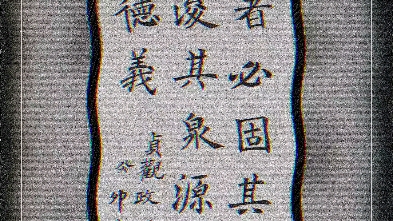 者必固其
浚其泉源
德義
貞觀政
卯